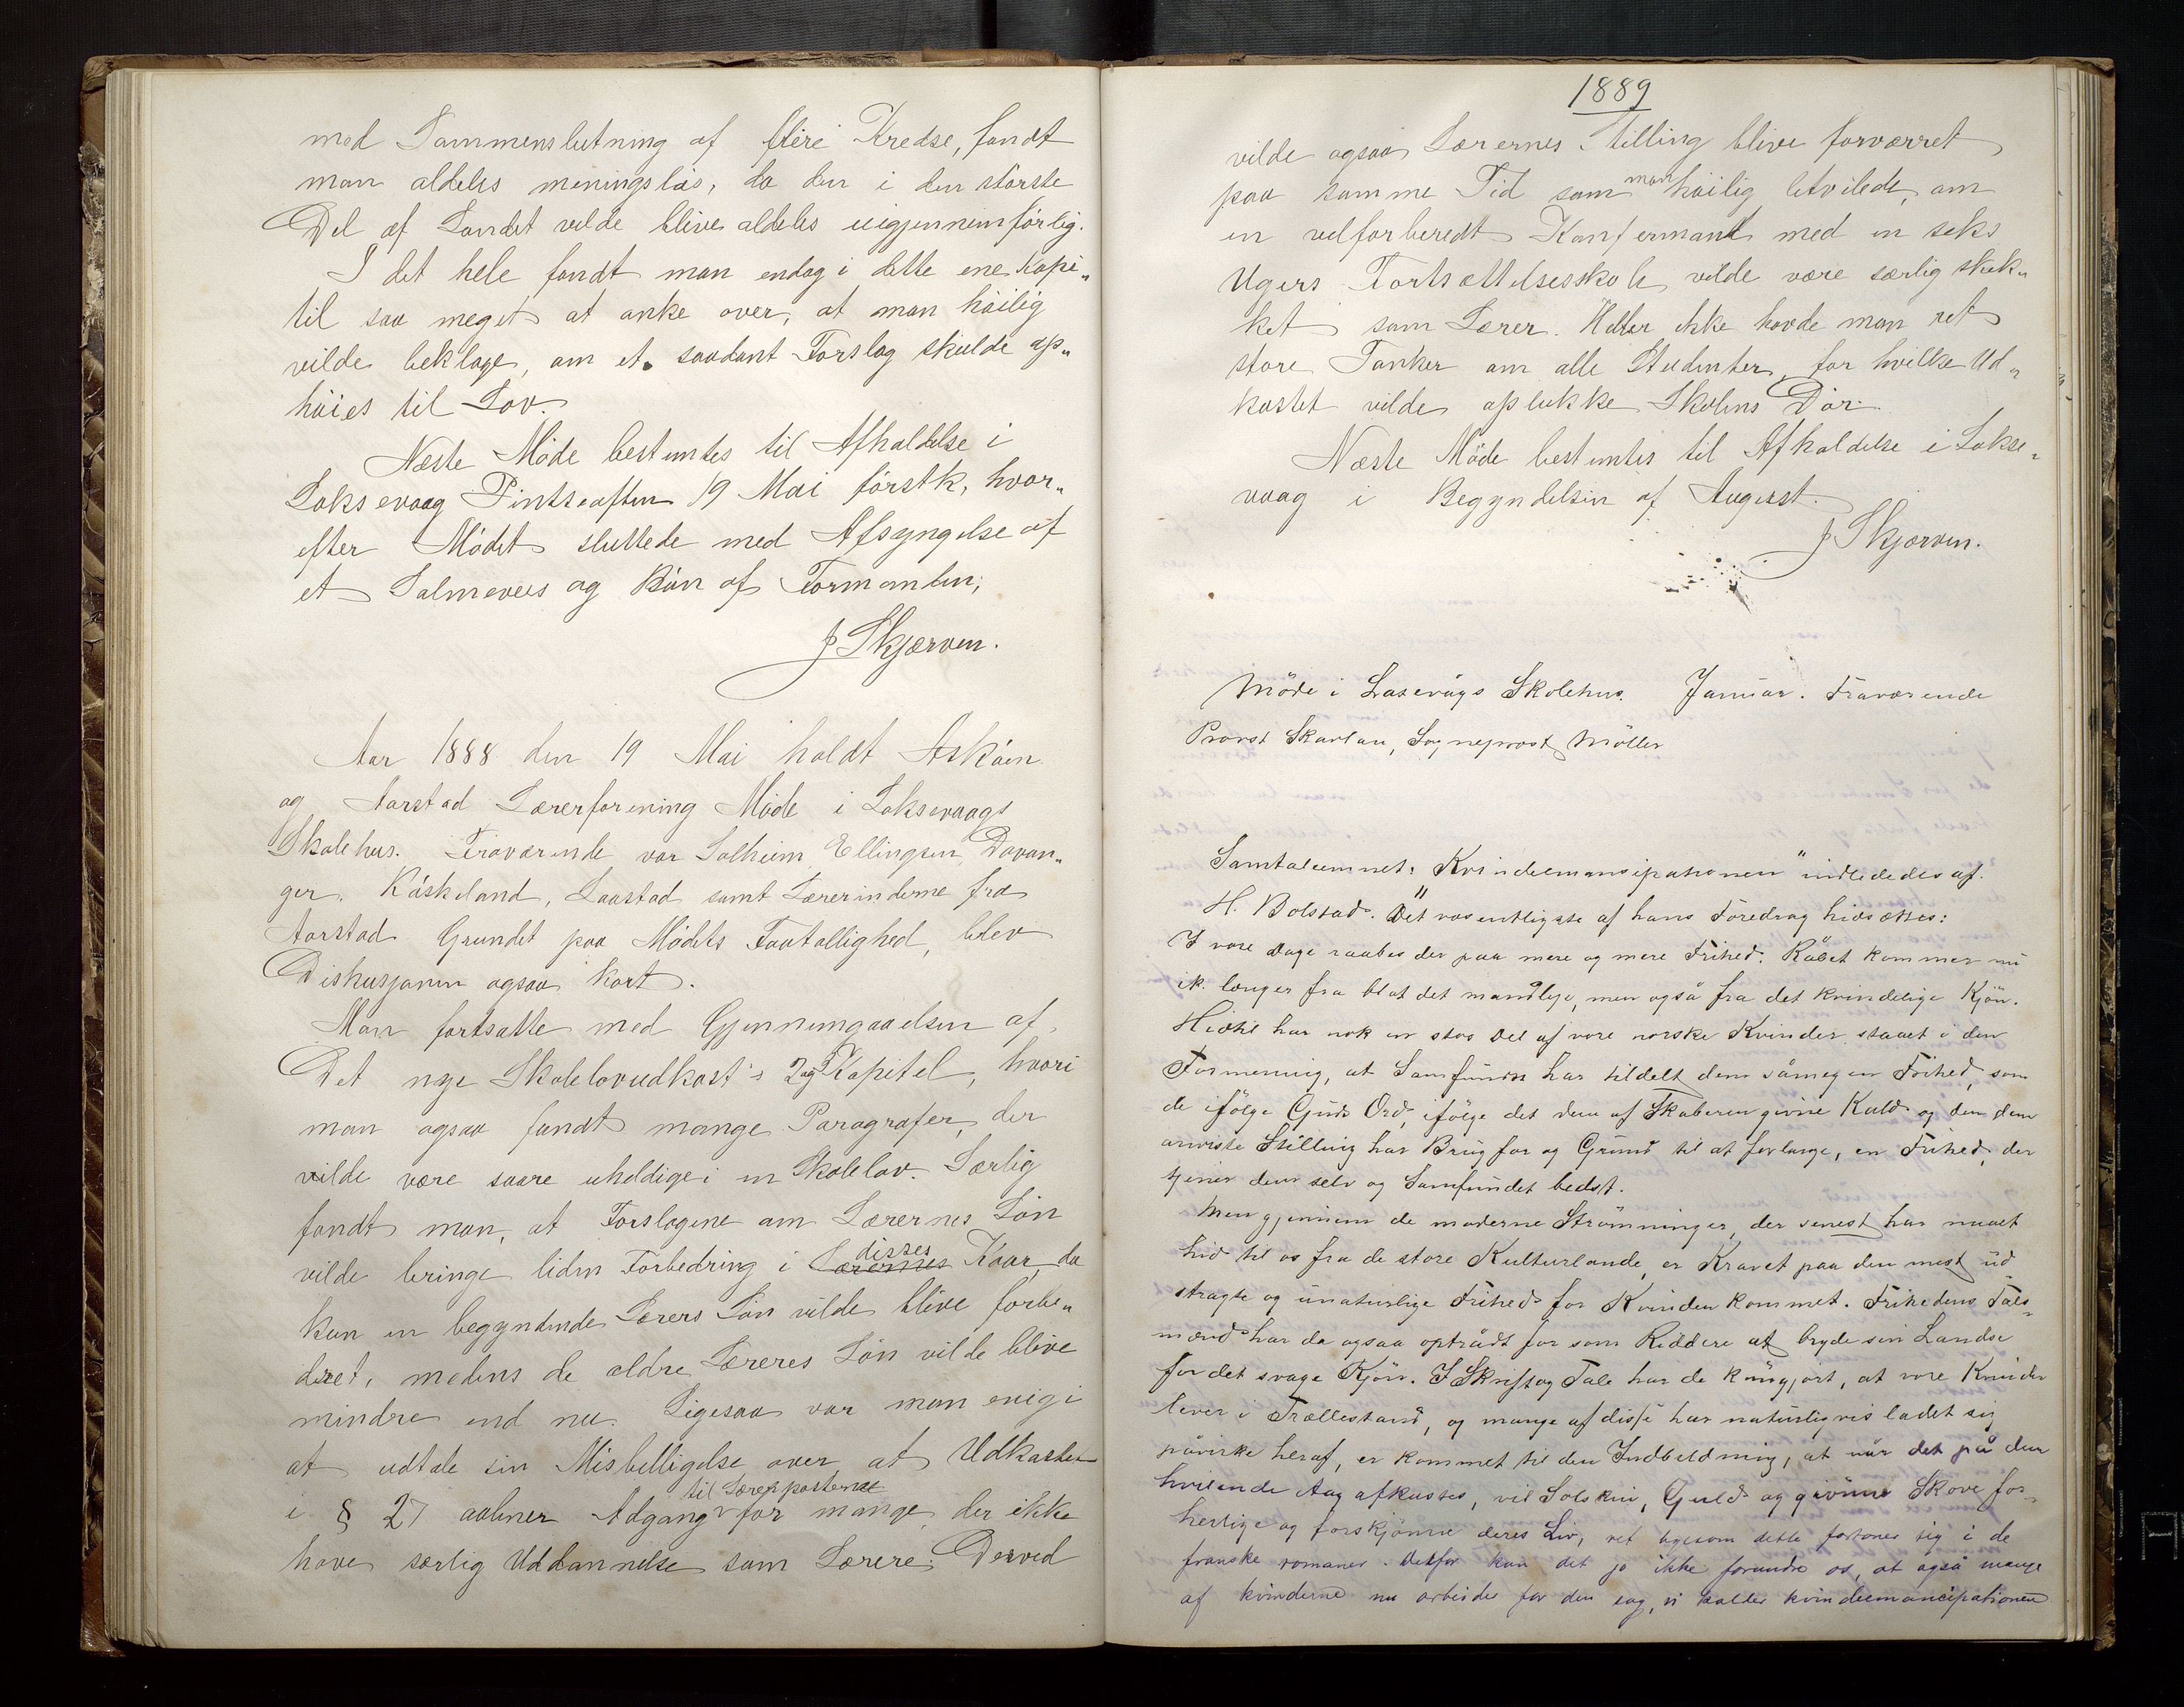 med Sammenslutning af flere Kredse, fandt
man aldeles meningsløs, da den i den største
Del af Landet vilde blive aldeles uigjennemførlig.
I det hele fandt man endog i dette ene Kapi„
til saa meget at anke over, at man høilig
vilde beklage, om et saadant Forslag skulde op„
høies til Lov.
Næste Møde bestemtes til Afholdelse i
Laksevaag Pintseaften 19 Mai førstk, hvor„
efter Mødet sluttede med Afsyngelse af
et Salmevers og Bøn af Formanden;
J Skjærven.
Aar 1888 den 19 Mai holdt Askøen
og Aarstad Lærerforening Møde i Laksevaags
Skolehus. Fraværende var Solheim, Ellingsen, Davan„
ger, Káskeland, Laastad samt Lærerinderne fra
Aarstad Grundet paa Mødets Faatallighed, blev
Diskusjonen ogsaa kort.
Man fortsatte med Gjennemgaaelsen af
Det nye Skolelovudkast's 2og Kapitel, hvori
man ogsaa fandt mange Paragrafer, der
vilde være saare uheldige i en Skolelov. Særlig
fandt man, at Forslagene om Lærernes Løn
vilde bringe liden Forbedring i Lærernes disses Kaar, da
kun en begyndende Lærers Løn vilde blive forbe„
dret, medens de ældre Læreres Løn vilde blive
mindre end nu. Ligesaa var man enig i
at udtale sin Misbilligelse over at Udkastet
i § 27 aabner Adgang til Lærerposterne for mange, der ikke
have særlig Uddannelse som Lærere. Derved
1889
vilde ogsaa Lærernes Stilling blive forværret
paa samme Tid som man høilig betvilede, om
en velforberedt Konfermant med en seks
Ugers Fortsættelsesskole vilde være særlig skik„
ket som Lærer. Heller ikke havde man ret
store Tanker om alle Studenter, for hvilke Ud„
kastet vilde oplukke Skolens Dør.
Næste Møde bestemtes til Afholdelse i Lakse„
vaag i Begyndelsen af August.
J Skjærven.
Møde i Laxevågs Skolehus. Januar. Fraværende
Provst Skavlan, Sogneprest Møller
Samtaleemnet: „Kvindeemansipationen" indlededes af
H. Bolstad. Det væsentligste af hans Foredrag hidsættes:
I vore Dage raabes der paa mere og mere Frihed. Råbet kommer nu
ik. længer fra blot det mandlige, men også fra det kvindelige Kjøn.
Hidtil har nok en stor Del af vore norske Kvinder staaet i den
Formening, at Samfundet har tildelt dem såmegen Frihed, som
de ifølge Guds Ord, ifølge det dem af Skaberen givne Kald og den dem
anviste Stilling har Brug for og Grund til at forlange, en Frihed, der
tjener dem selv og Samfundet bedst.
Men gjennem de moderne Strømninger, der senest har naaet
hid til os fra de store Kulturlande, er Kravet paa den mest ud
stragte og unaturlige Frihed for Kvinden kommet. Frihedens Tals„
mænd har da ogsaa optrådt for som Riddere at bryde sin Landse
for det svage Kjøn. I Skrift og Tale har de kungjort, at vore Kvinder
lever i Trællestand, og mange af disse har naturligvis ladet sig
påvirke heraf, er kommet til den Indbildning, at når det på dem
hvilende Aag afkastes, vil Solskin, Guld og grønne Skove for„
herlige og forskjønne deres Liv, ret ligesom dette fortoner sig i de
franske romaner. Derfor kan det jo ikke forundre os, at også mange
af kvinderne nu arbeider for den sag, vi kalder kvindeemancipationen